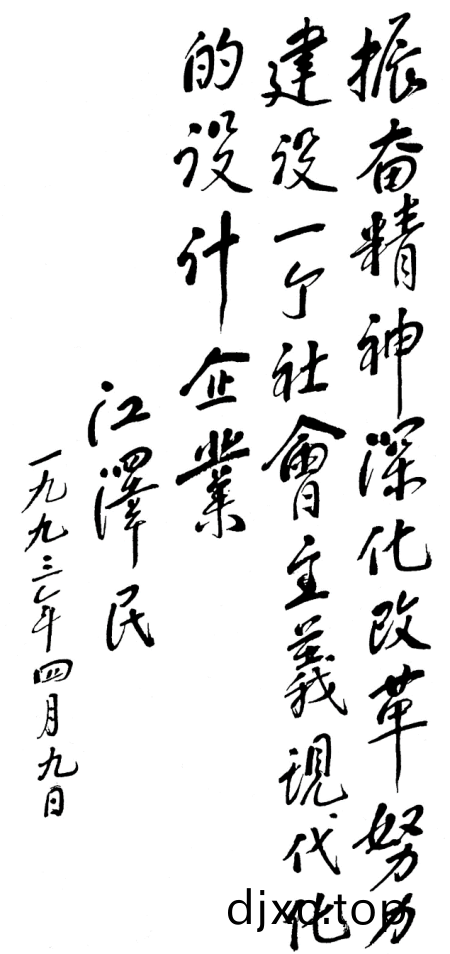 振奋精神深化改革努力
建设一个社會主義現代化
的设计企業
江澤民
一九九三年四月九日
djxq.top